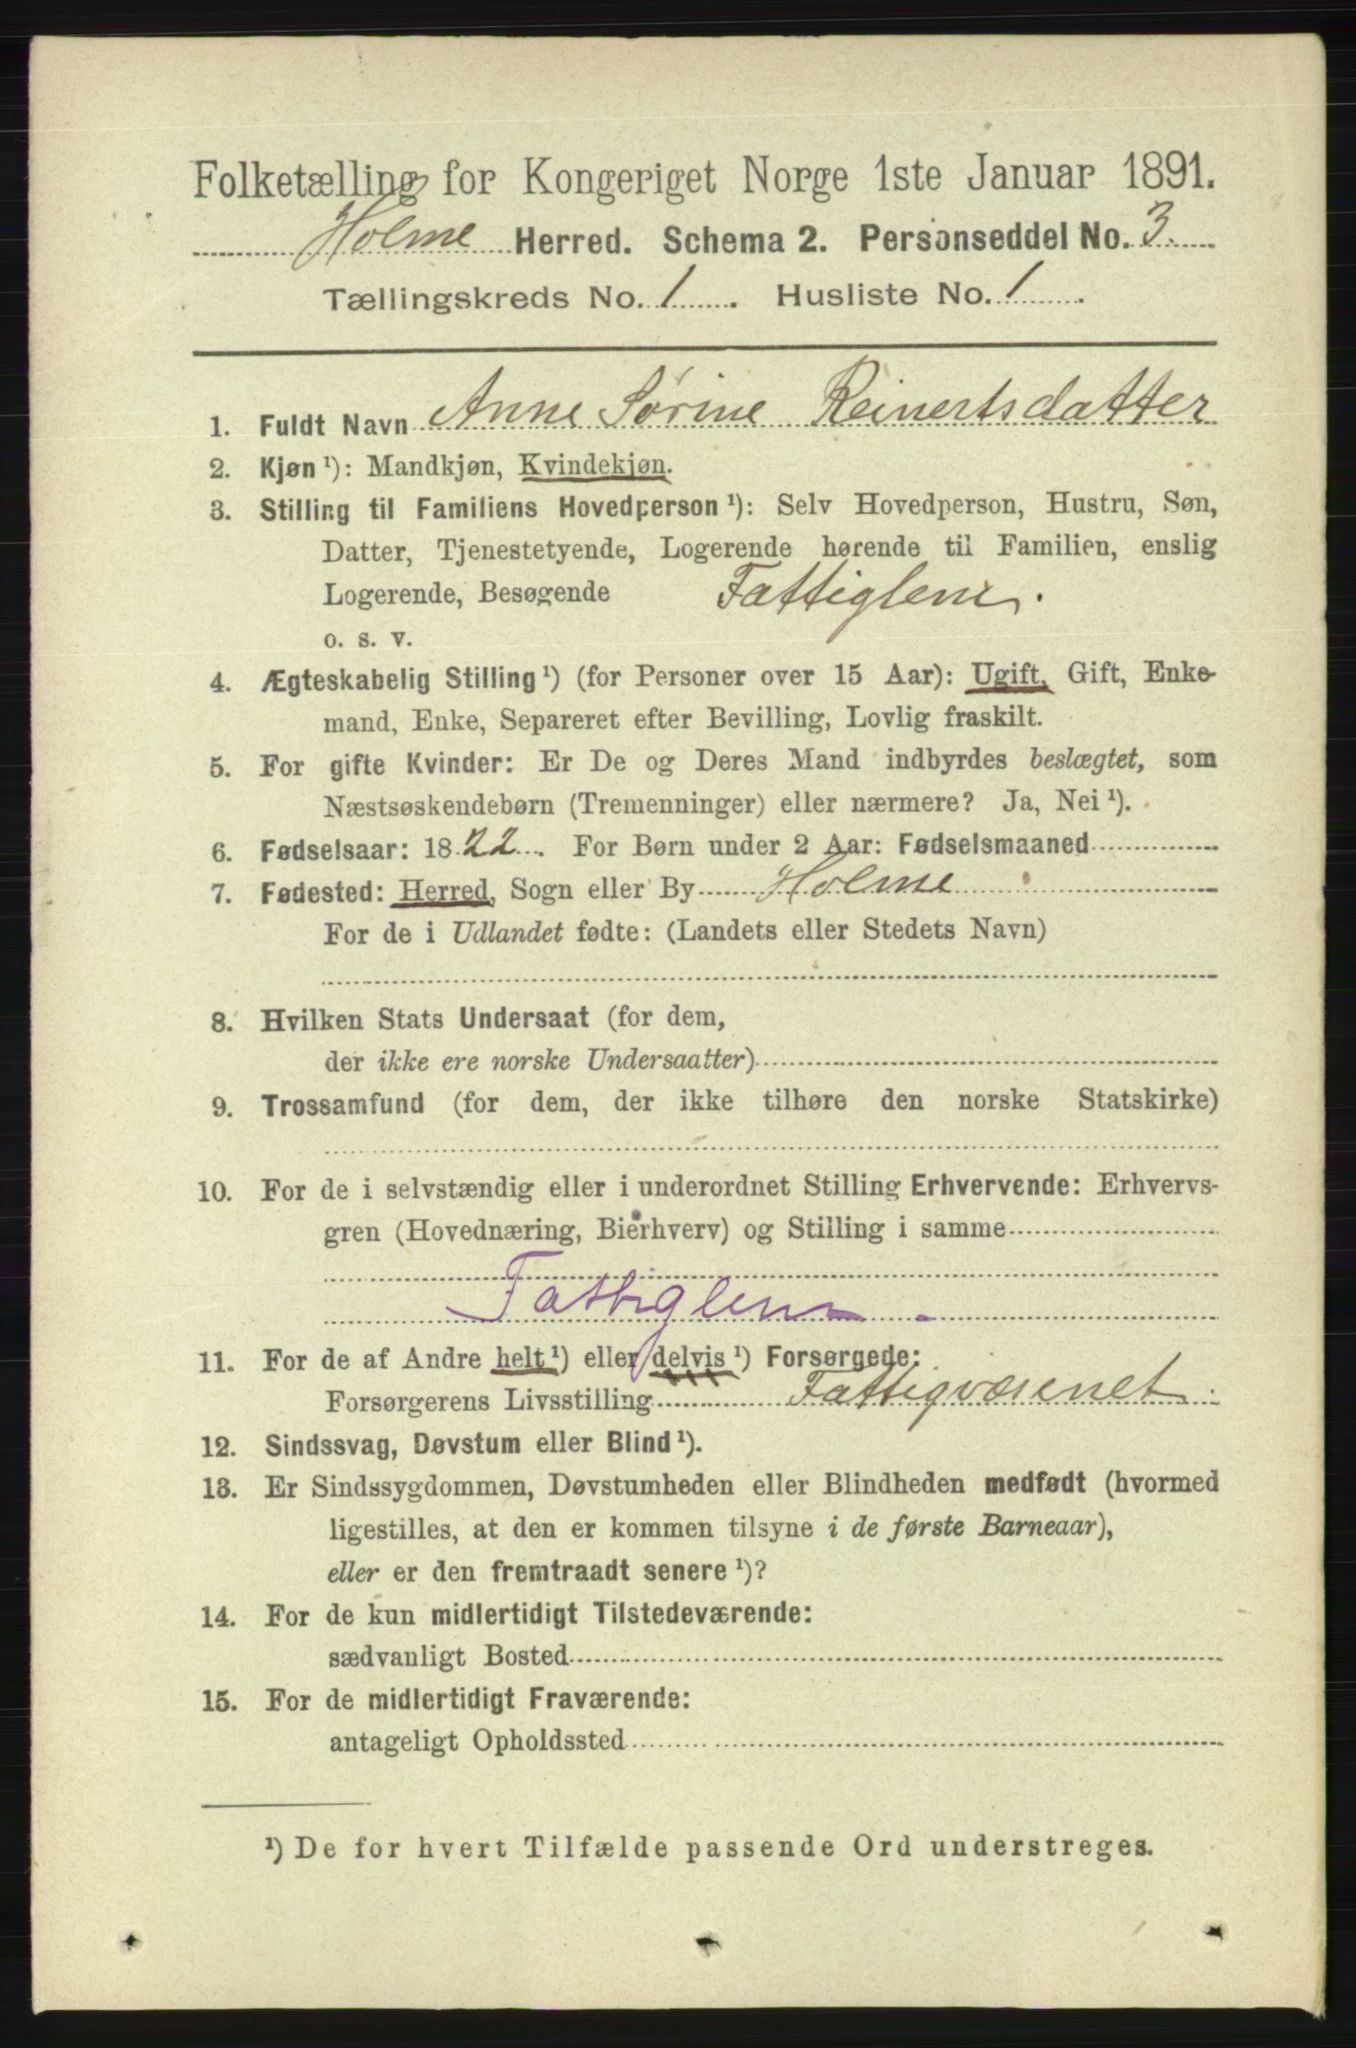 Folketælling for Kongeriget Norge 1ste Januar 1891.
Holme Herred. Schema 2. Personseddel No. 3.
Tællingskreds No. 1. Husliste No. 1.
1. Fuldt Navn Anne Sørine Reinertsdatter
2. Kjøn ¹): Mandkjøn, Kvindekjøn.
3. Stilling til Familiens Hovedperson ¹): Selv Hovedperson, Hustru, Søn,
Datter, Tjenestetyende, Logerende hørende til Familien, enslig
Logerende, Besøgende Fattiglem.
o. s. v.
4. Ægteskabelig Stilling ¹) (for Personer over 15 Aar): Ugift, Gift, Enke-
mand, Enke, Separeret efter Bevilling, Lovlig fraskilt.
5. For gifte Kvinder: Er De og Deres Mand indbyrdes beslægtet, som
Næstsøskendebørn (Tremenninger) eller nærmere? Ja, Nei ¹).
6. Fødselsaar: 1822. For Børn under 2 Aar: Fødselsmaaned
7. Fødested: Herred, Sogn eller By Holme
For de i Udlandet fødte: (Landets eller Stedets Navn)
8. Hvilken Stats Undersaat (for dem,
der ikke ere norske Undersaatter)
9. Trossamfund (for dem, der ikke tilhøre den norske Statskirke)
10. For de i selvstændig eller i underordnet Stilling Erhvervende: Erhvervs-
gren (Hovednæring, Bierhverv) og Stilling i samme
Fattiglem.
11. For de af Andre helt ¹) eller delvis ¹) Forsørgede:
Forsørgerens Livsstilling Fattigvæsenet.
12. Sindssvag, Døvstum eller Blind ¹).
13. Er Sindssygdommen, Døvstumheden eller Blindheden medfødt (hvormed
ligestilles, at den er kommen tilsyne i de første Barneaar),
eller er den fremtraadt senere ¹)?
14. For de kun midlertidigt Tilstedeværende:
sædvanligt Bosted
15. For de midlertidigt Fraværende:
antageligt Opholdssted
¹) De for hvert Tilfælde passende Ord understreges.